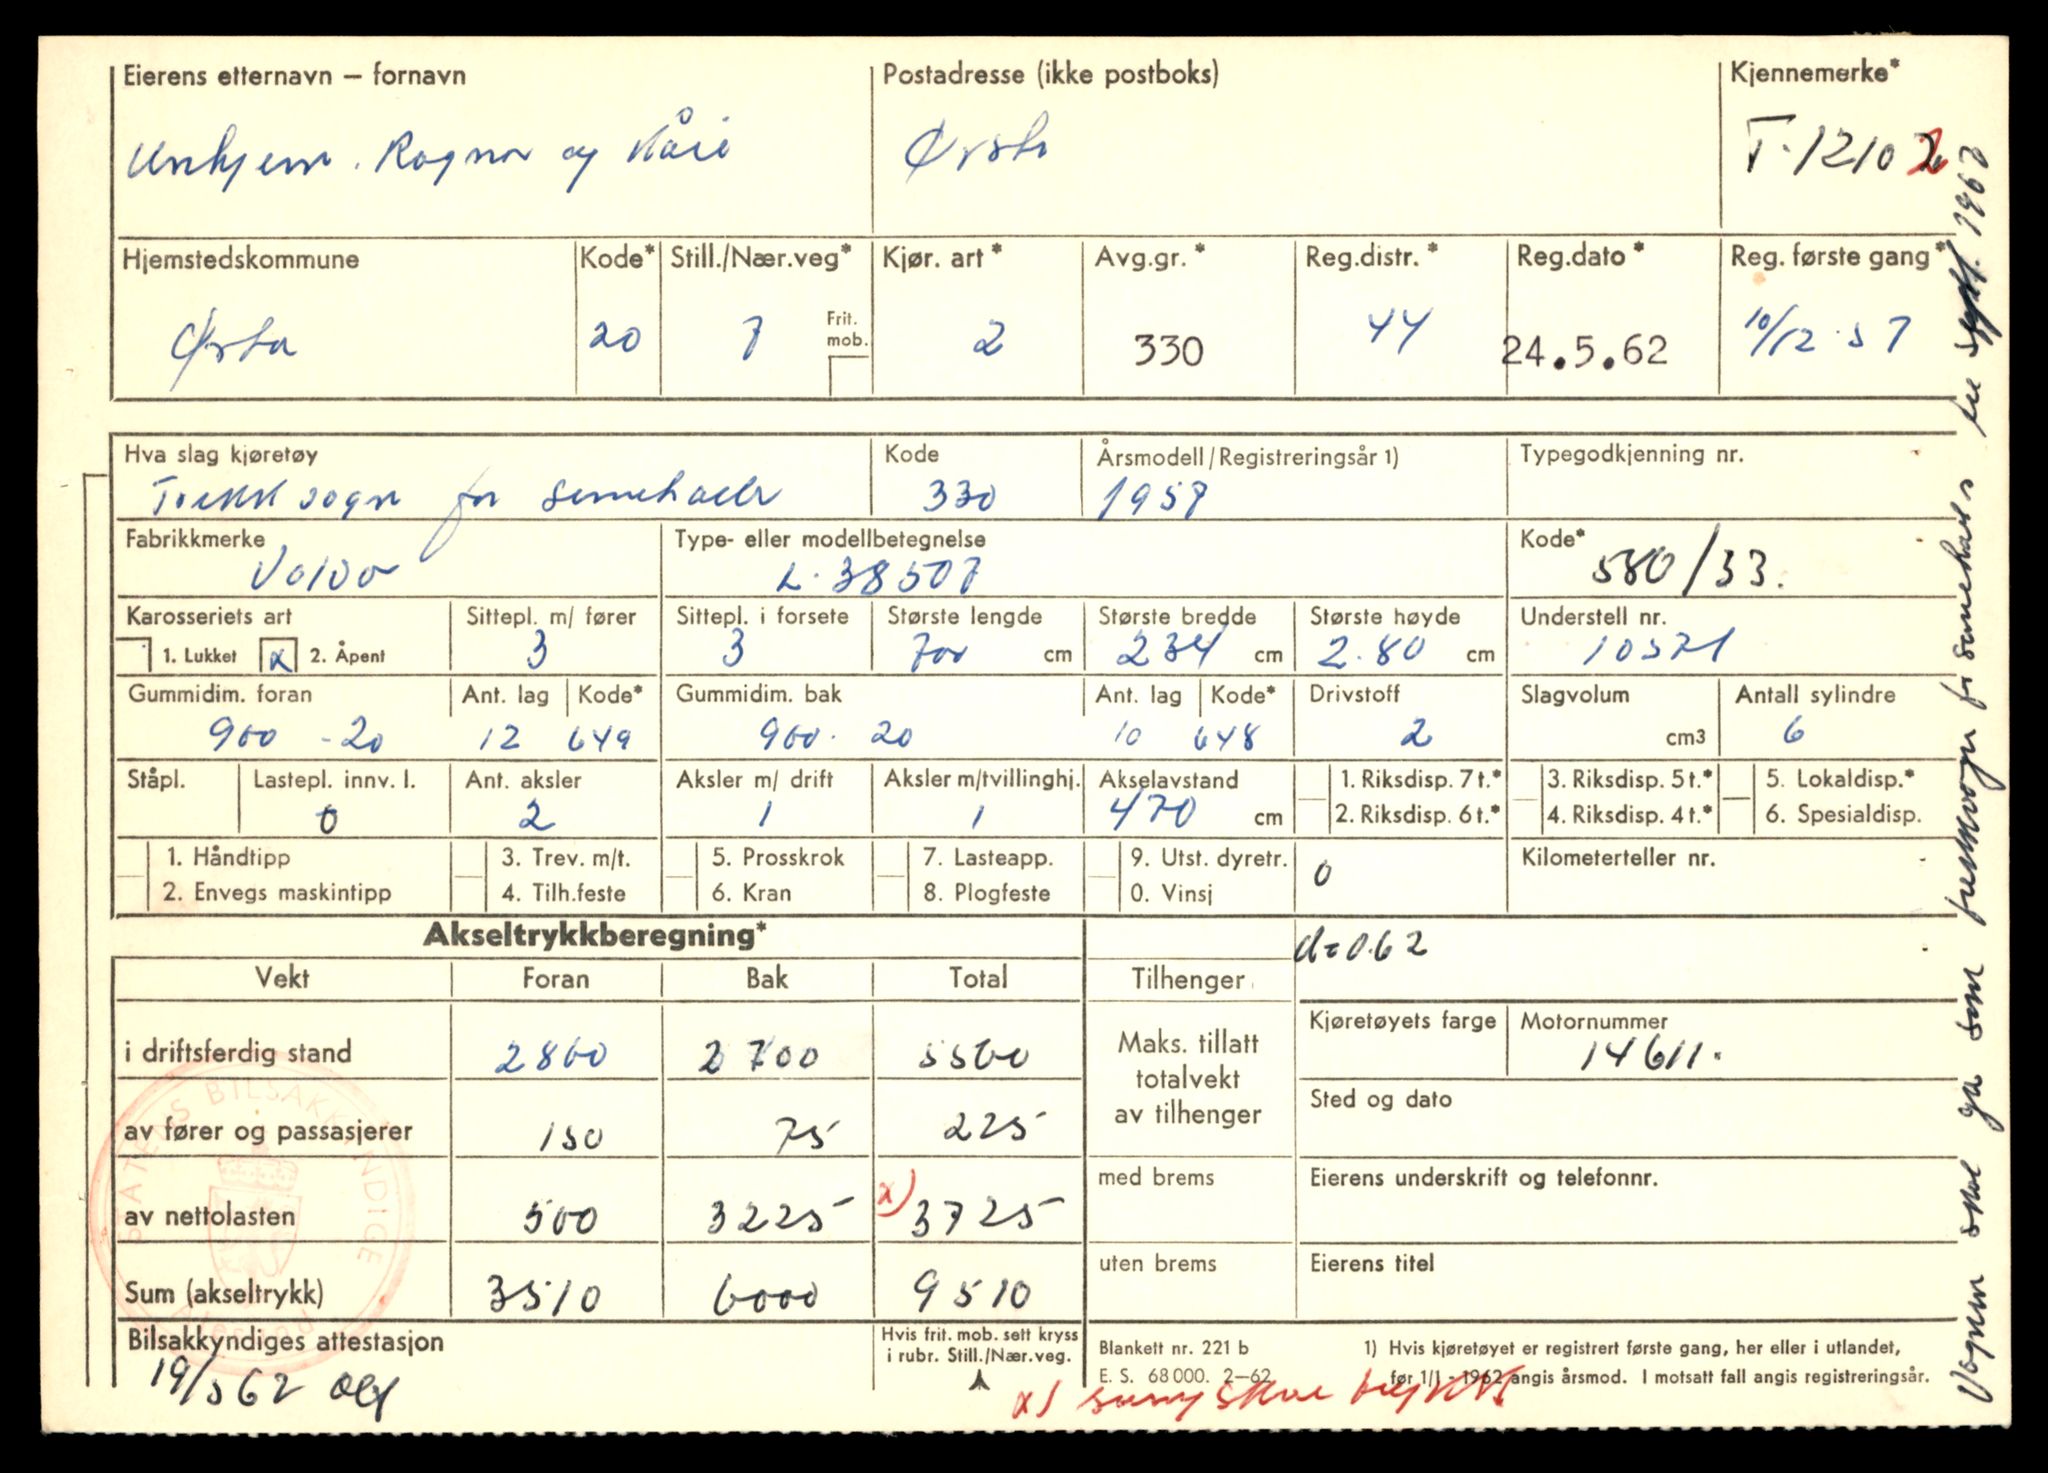 Eierens etternavn – fornavn
Postadresse (ikke postboks)
Kjennemerke*
Ragnar og Kåre
Ørsta
T-12102
Hjemstedskommune
Kode*
Still./Nær.veg*
Kjør. art*
Avg.gr.*
Reg.distr.*
Reg.dato*
Reg. første gang*
Ørsta
20
7
Frit. mob.
2
330
44
24.5.62
10/12 57
Hva slag kjøretøy
Kode
Årsmodell/Registreringsår 1)
Typegodkjenning nr.
Trekkvogn for semihaler
330
1957
Fabrikkmerke
Type- eller modellbetegnelse
Kode*
Volvo
L.38507
580/33.
Karosseriets art
Sittepl. m/ fører
Sittepl. i forsete
Største lengde
Største bredde
Største høyde
Understell nr.
1. Lukket
x 2. Åpent
3
3
700 cm
234 cm
2.80 cm
10571
Gummidim. foran
Ant. lag
Kode*
Gummidim. bak
Ant. lag
Kode*
Drivstoff
Slagvolum
Antall sylindre
900 - 20
12
649
900. 20
10
648
2
cm3
6
Ståpl.
Lastepl. innv. l.
Ant. aksler
Aksler m/ drift
Aksler m/tvillinghj.
Akselavstand
1. Riksdisp. 7 t.*
3. Riksdisp. 5 t.*
5. Lokaldisp.*
0
2
1
1
470 cm
2. Riksdisp. 6 t.*
4. Riksdisp. 4 t.*
6. Spesialdisp.
1. Håndtipp
3. Trev. m/t.
5. Prosskrok
7. Lasteapp.
9. Utst. dyretr.
0
Kilometerteller nr.
2. Envegs maskintipp
4. Tilh.feste
6. Kran
8. Plogfeste
0. Vinsj
Akseltrykkberegning*
d=0.62
Vekt
Foran
Bak
Total
Tilhenger
Kjøretøyets farge
Motornummer
14611.
i driftsferdig stand
2860
2700
5560
Maks. tillatt
totalvekt
av tilhenger
Sted og dato
av fører og passasjerer
150
75
225
av nettolasten
500
3225
x) 3725
med brems
Eierens underskrift og telefonnr.
Sum (akseltrykk)
3510
6000
9510
uten brems
Eierens titel
Bilsakkyndiges attestasjon
Hvis frit. mob. sett kryss
i rubr. Still./Nær.veg.
Blankett nr. 221 b
E. S. 68 000. 2–62
1) Hvis kjøretøyet er registrert første gang, her eller i utlandet,
før 1/1 - 1962 angis årsmod. I motsatt fall angis registreringsår.
19/5 62
x)
Vognen skal gå som trekkvogn for semihaler til sept. 1962
STATENS BILSAKKYNDIGE